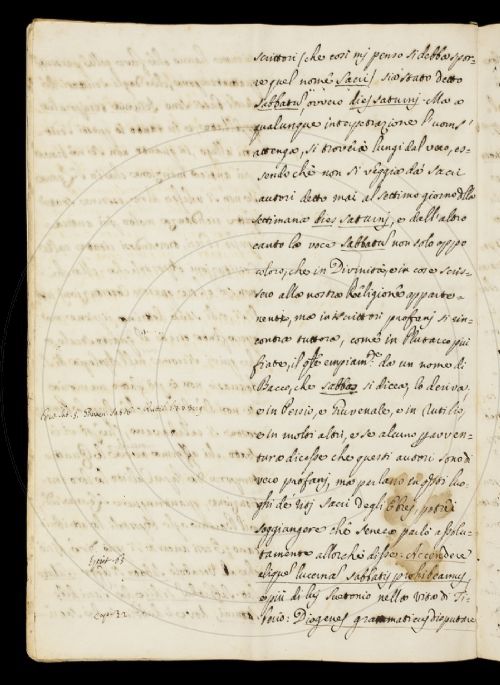 scrittori (che così mj penso si debba espor-
re quel nome Sacri) sia stato detto
Sabbatuſ, ovvero dieſ Saturnj. Ma a
qualunque interpetrazione l'uom s'
attenga, si troverà lungi dal vero, es-
sendo che non si veggia da' sacri
autori detto mai al settimo giorno dlla
settimana dies Saturnj, e dall'altro
canto la voce Sabbatuſ non solo appo
coloro, che in Divinità, e in cose scris-
sero alla nostra Religione apparte-
nenti, ma in iscrittori profanj si rin-
contra tuttora, come in Plutarco più
fiate, il qle empiamte da un nome di
Bacco, che Sabbos si dicea, lo deriva,
e in Persio, e Giuvenale, e in Rutilio
e in molti altri, e se alcuno p avven-
tura dicesse che questi autori sono di
vero profanj, ma parlano in qsti luo-
ghi de' ritj sacri degli Ebrej, potrei
soggiungere che Seneca parlò assolu-
tamente allorchè disse: Accendere
aliquem lucernas Sabbatis prohibeamus,
e più di lui Suetonio nella vita di Ti-
berio: Diogenes grammaticus disputare
Epist. 95
Cap. 32